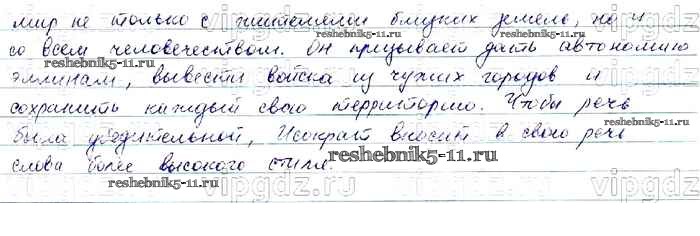 мир не только с жителями близких земель, но и
со всем человечеством. Он призывает дать автономию
эллинам, вывести войска из чужих городов и
сохранить каждый свою территорию. Чтобы речь
была убедительной, Исократ вносит в свою речь
слова более высокого стиля.
reshebnik5-11.ru
reshebnik5-11.ru
reshebnik5-11.ru
reshebnik5-11.ru
reshebnik5-11.ru
vipgdz.ru
vipgdz.ru